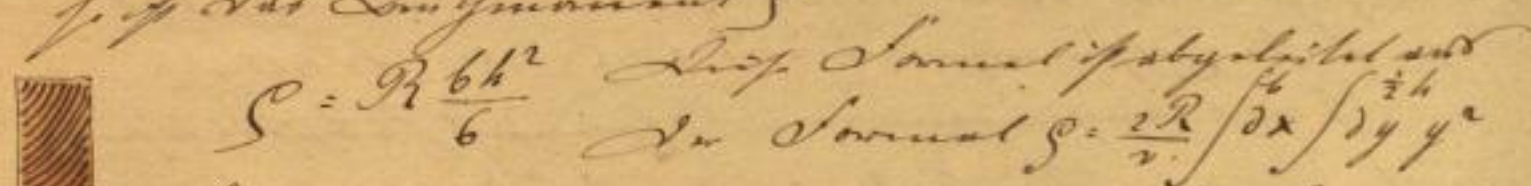 so ist das Bruchmoment
ρ = R bh²/6 Diese Formel ist abgeleitet aus
der Formel ρ = 2R/v. ∫ᵇ∂x ∫^{½h}∂y y²